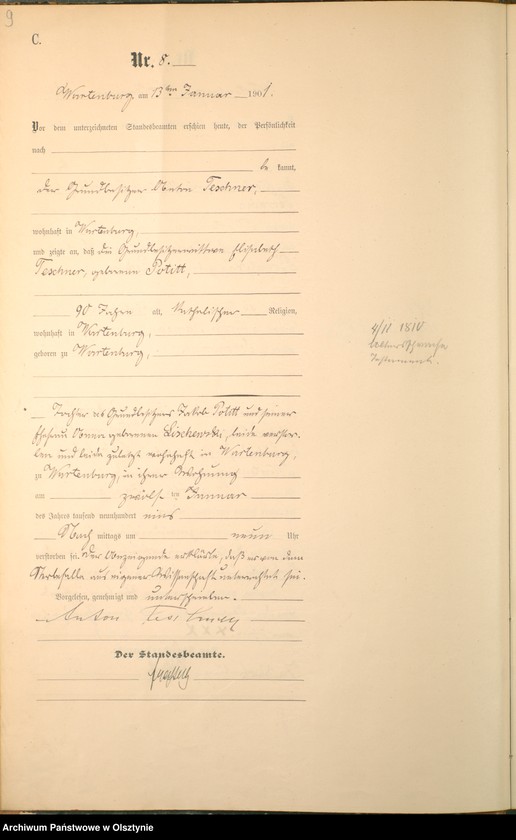 9
C.
Nr. 8.
Wartenburg am 13ten Januar 1901.
Vor dem unterzeichneten Standesbeamten erschien heute, der Persönlichkeit
nach
be kannt,
der Grundbesitzer Anton Teschner,
wohnhaft in Wartenburg,
und zeigte an, daß die Grundbesitzerwittwe Elisabeth
Teschner, geborene Politt,
90 Jahre alt, katholischer Religion,
wohnhaft in Wartenburg,
geboren zu Wartenburg,
Tochter des Grundbesitzers Jakob Politt und seiner
Ehefrau Anna geborenen Lischewski, beide verstor-
ben und beide zuletzt wohnhaft in Wartenburg,
zu Wartenburg, in ihrer Wohnung
am zwölften Januar
des Jahres tausend neunhundert eins
Nach mittags um neun Uhr
verstorben sei. Der Anzeigende erklärte, daß er von dem
Sterbefalle aus eigener Wissenschaft unterrichtet sei.
Vorgelesen, genehmigt und unterschrieben.
Anton Teschner
Der Standesbeamte.
4/11 1810
Testament.
Archiwum Państwowe w Olsztynie